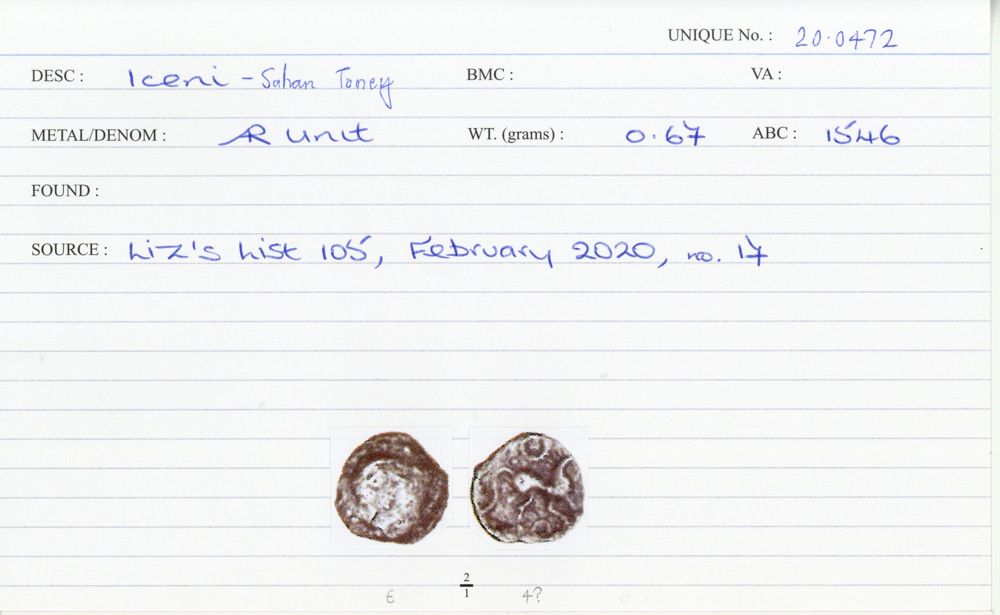 UNIQUE No. : 20.0472
DESC : Iceni - Sahan Toney BMC : VA :
METAL/DENOM : AR Unit WT. (grams) : 0.67 ABC : 1546
FOUND :
SOURCE : Liz's List 105, February 2020, no. 17
2
6 1 4?